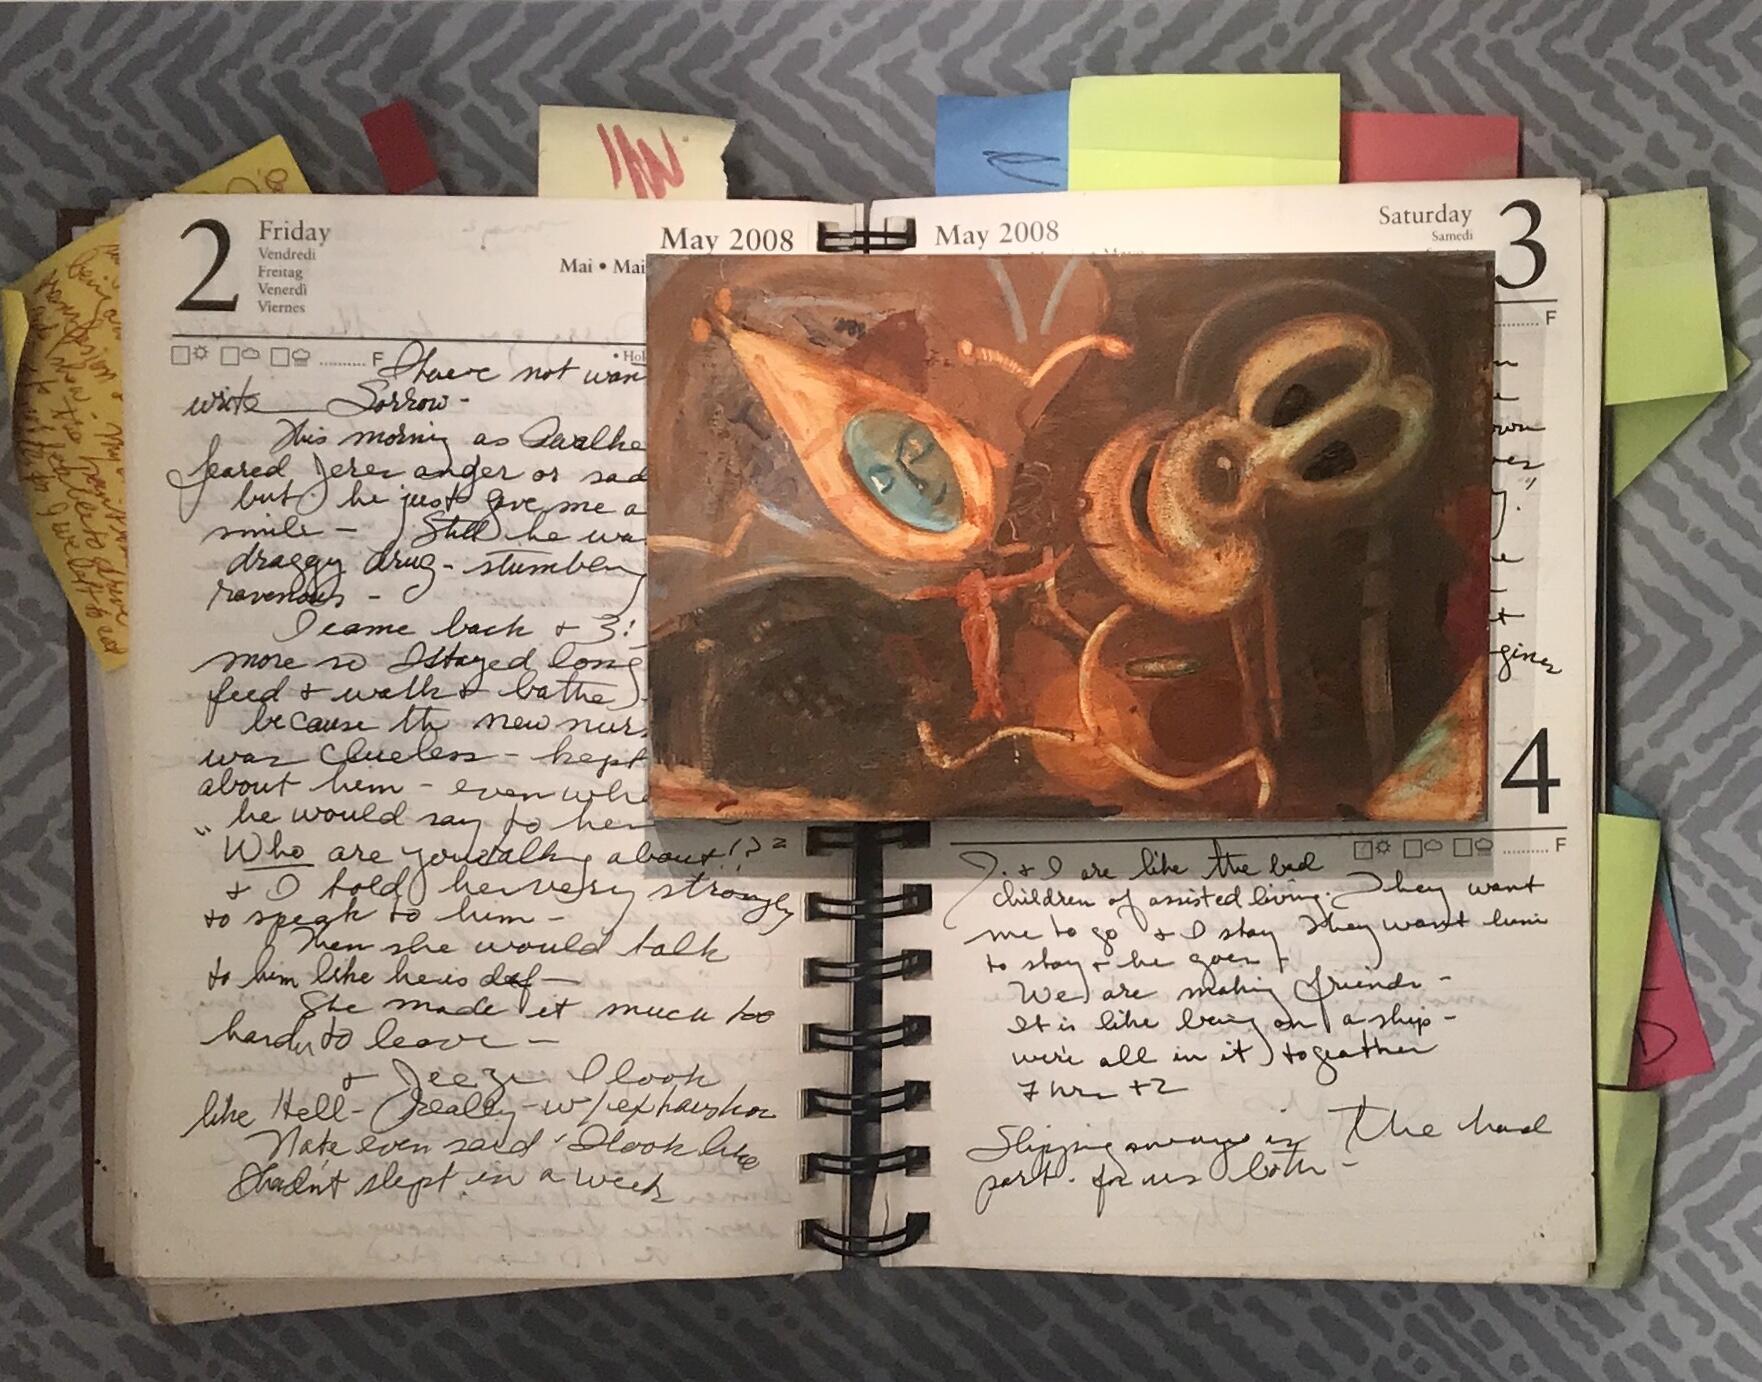 2
Friday
Vendredi
Freitag
Venerdì
Viernes
May 2008
Mai • Mai
F
• Hol
I have not wan
write Sorrow -
This morning as I walke
feared Jere anger or sad
but he just gave me a
smile - Still he wa
draggy drug - stumbling
ravenous -
I came back + 3:
more so I stayed long
feed + walk + bathe
because th new nur
was clueless - kept
about him - even whe
he would say to her
"Who are you talking about!?"
+ I told her very strongly
to speak to him -
Then she would talk
to him like he is def -
She made it much too
harder to leave -
+ Jeeze I look
like Hell - really - w/ exhaustion
Nate even said I look like
I hadn't slept in a week
May 2008
Saturday
Samedi
3
F
own
"
gines
4
F
J. + I are like the bad
children of assisted living. They want
me to go + I stay They want him
to stay + he goes
We are making friends -
It is like being on a ship -
we're all in it togeather
7 hrs +2
Slipping away is the hard
part - for us both -